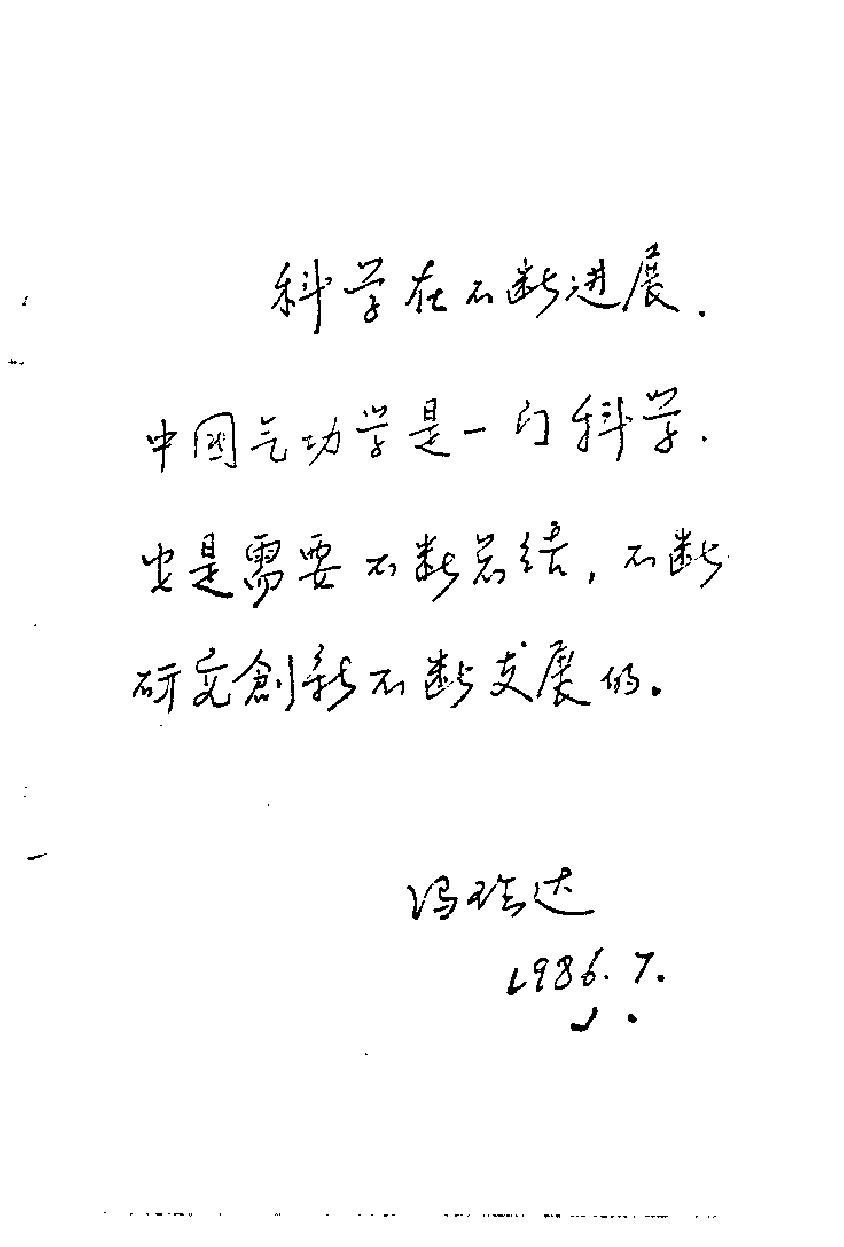 科学在不断进展.
中國气功学是一门科学.
也是需要不断总结,不断
研究創新不断发展的.
冯 达
1986.7.